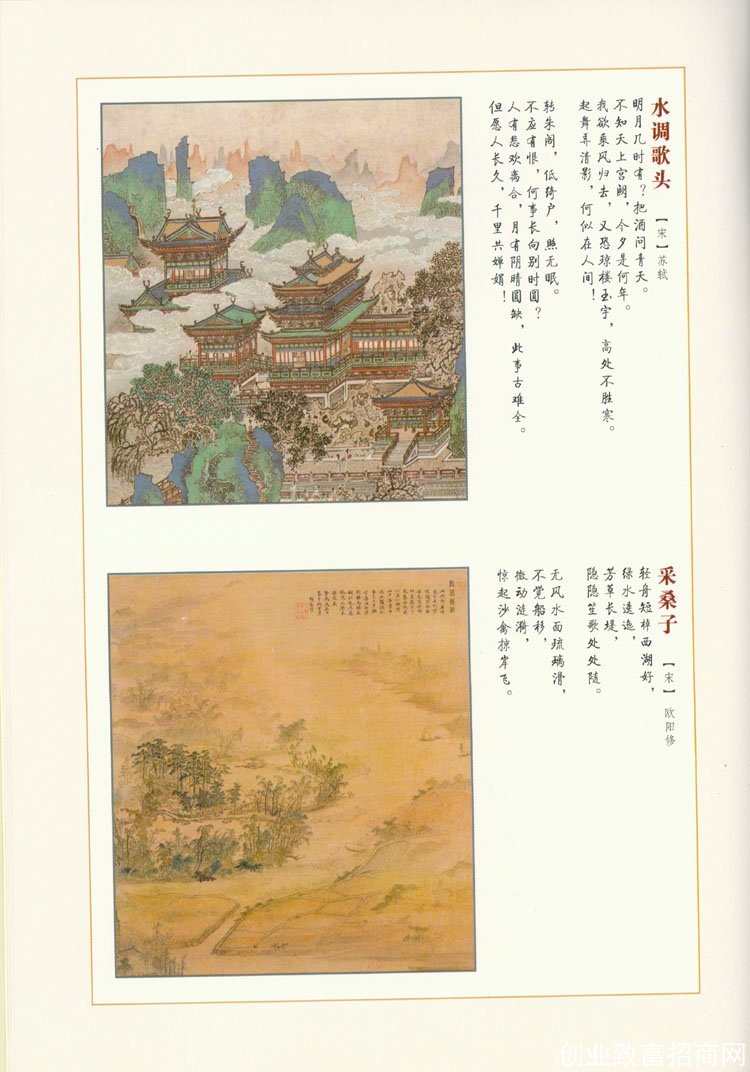 水调歌头
【宋】苏轼
明月几时有？把酒问青天。
不知天上宫阙，今夕是何年。
我欲乘风归去，又恐琼楼玉宇，高处不胜寒。
起舞弄清影，何似在人间！
转朱阁，低绮户，照无眠。
不应有恨，何事长向别时圆？
人有悲欢离合，月有阴晴圆缺，此事古难全。
但愿人长久，千里共婵娟！
采桑子
【宋】欧阳修
轻舟短棹西湖好，
绿水逶迤，
芳草长堤，
隐隐笙歌处处随。
无风水面琉璃滑，
不觉船移，
微动涟漪，
惊起沙禽掠岸飞。
创业致富招商网